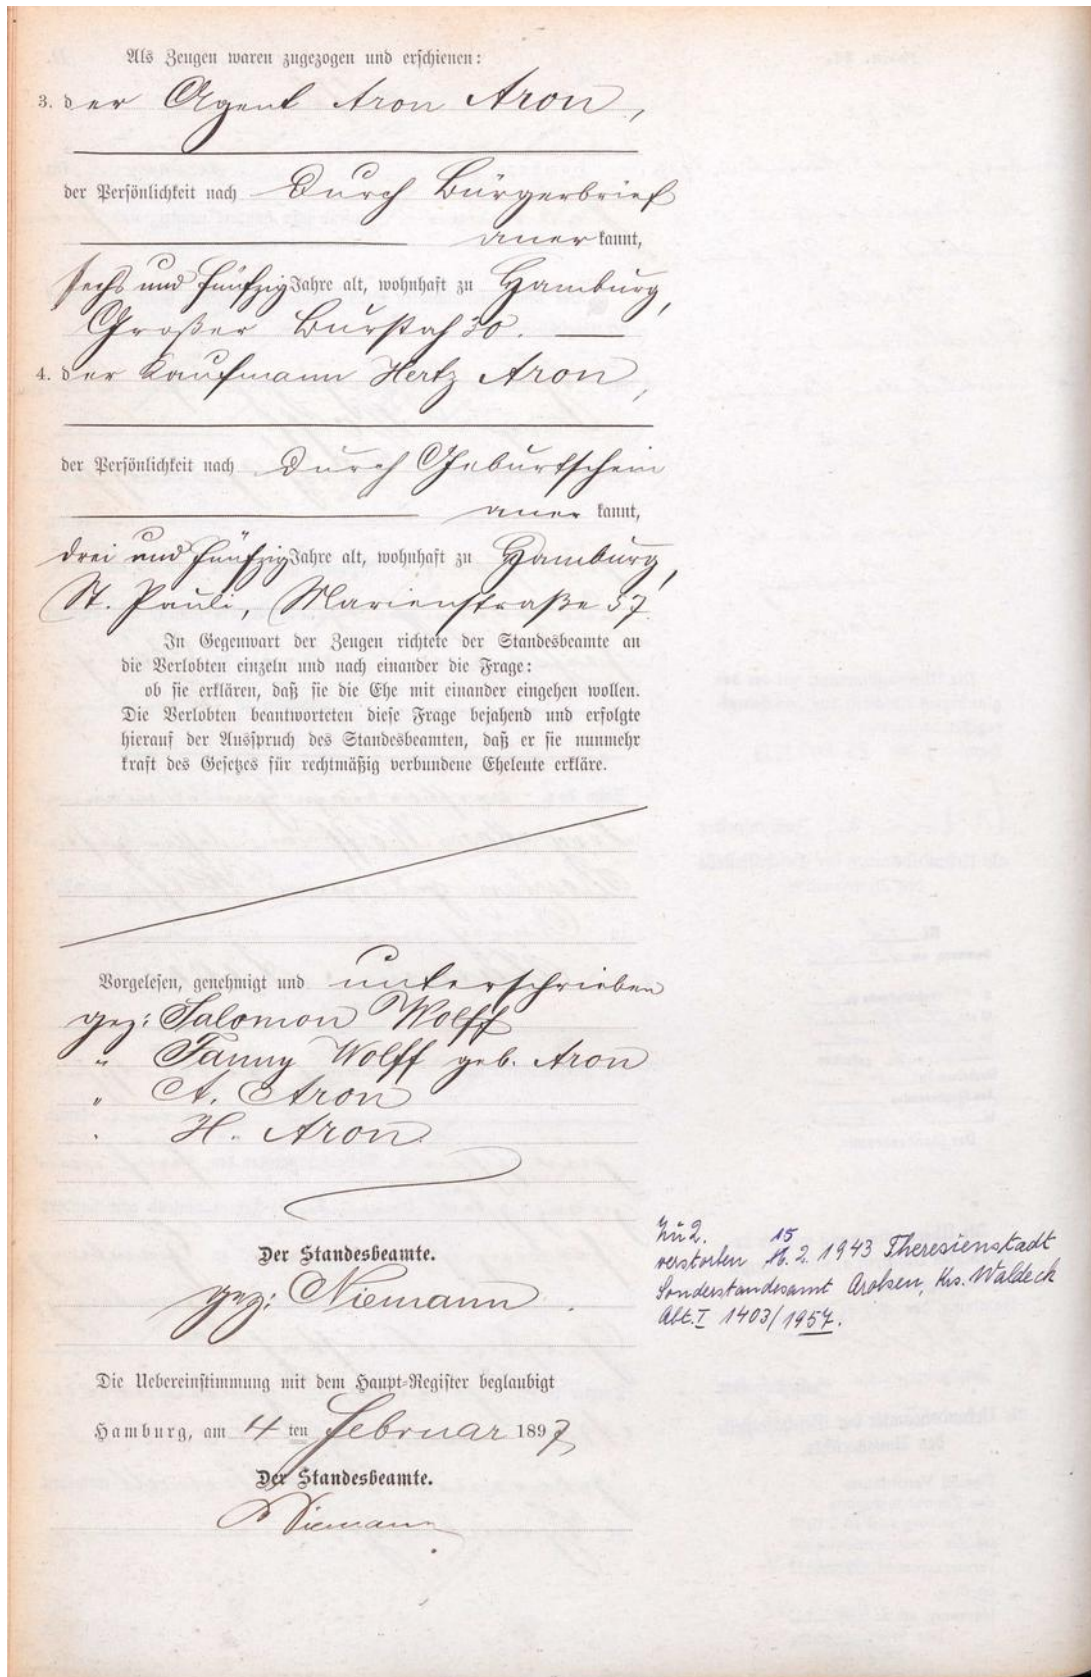 Als Zeugen waren zugezogen und erschienen:
3. der Agent Aron Aron,
der Persönlichkeit nach durch Bürgerbrief
anerkannt,
sechs und fünfzig Jahre alt, wohnhaft zu Hamburg,
Großer Burstah 30.
4. der Kaufmann Hertz Aron,
der Persönlichkeit nach durch Geburtschein
anerkannt,
drei und fünfzig Jahre alt, wohnhaft zu Hamburg,
St. Pauli, Marienstraße 37
In Gegenwart der Zeugen richtete der Standesbeamte an
die Verlobten einzeln und nach einander die Frage:
ob sie erklären, daß sie die Ehe mit einander eingehen wollen.
Die Verlobten beantworteten diese Frage bejahend und erfolgte
hierauf der Ausspruch des Standesbeamten, daß er sie nunmehr
kraft des Gesetzes für rechtmäßig verbundene Eheleute erkläre.
Vorgelesen, genehmigt und unterschrieben
gez: Salomon Wolff
" Fanny Wolff geb. Aron
" A. Aron
" H. Aron.
Der Standesbeamte.
gez: Niemann.
Zu 2.
verstorben 15. 2. 1943 Theresienstadt
Sonderstandesamt Arolsen, Krs. Waldeck
Abt. I 1403/1957.
Die Uebereinstimmung mit dem Haupt-Register beglaubigt
Hamburg, am 4 ten Februar 1897
Der Standesbeamte.
Niemann